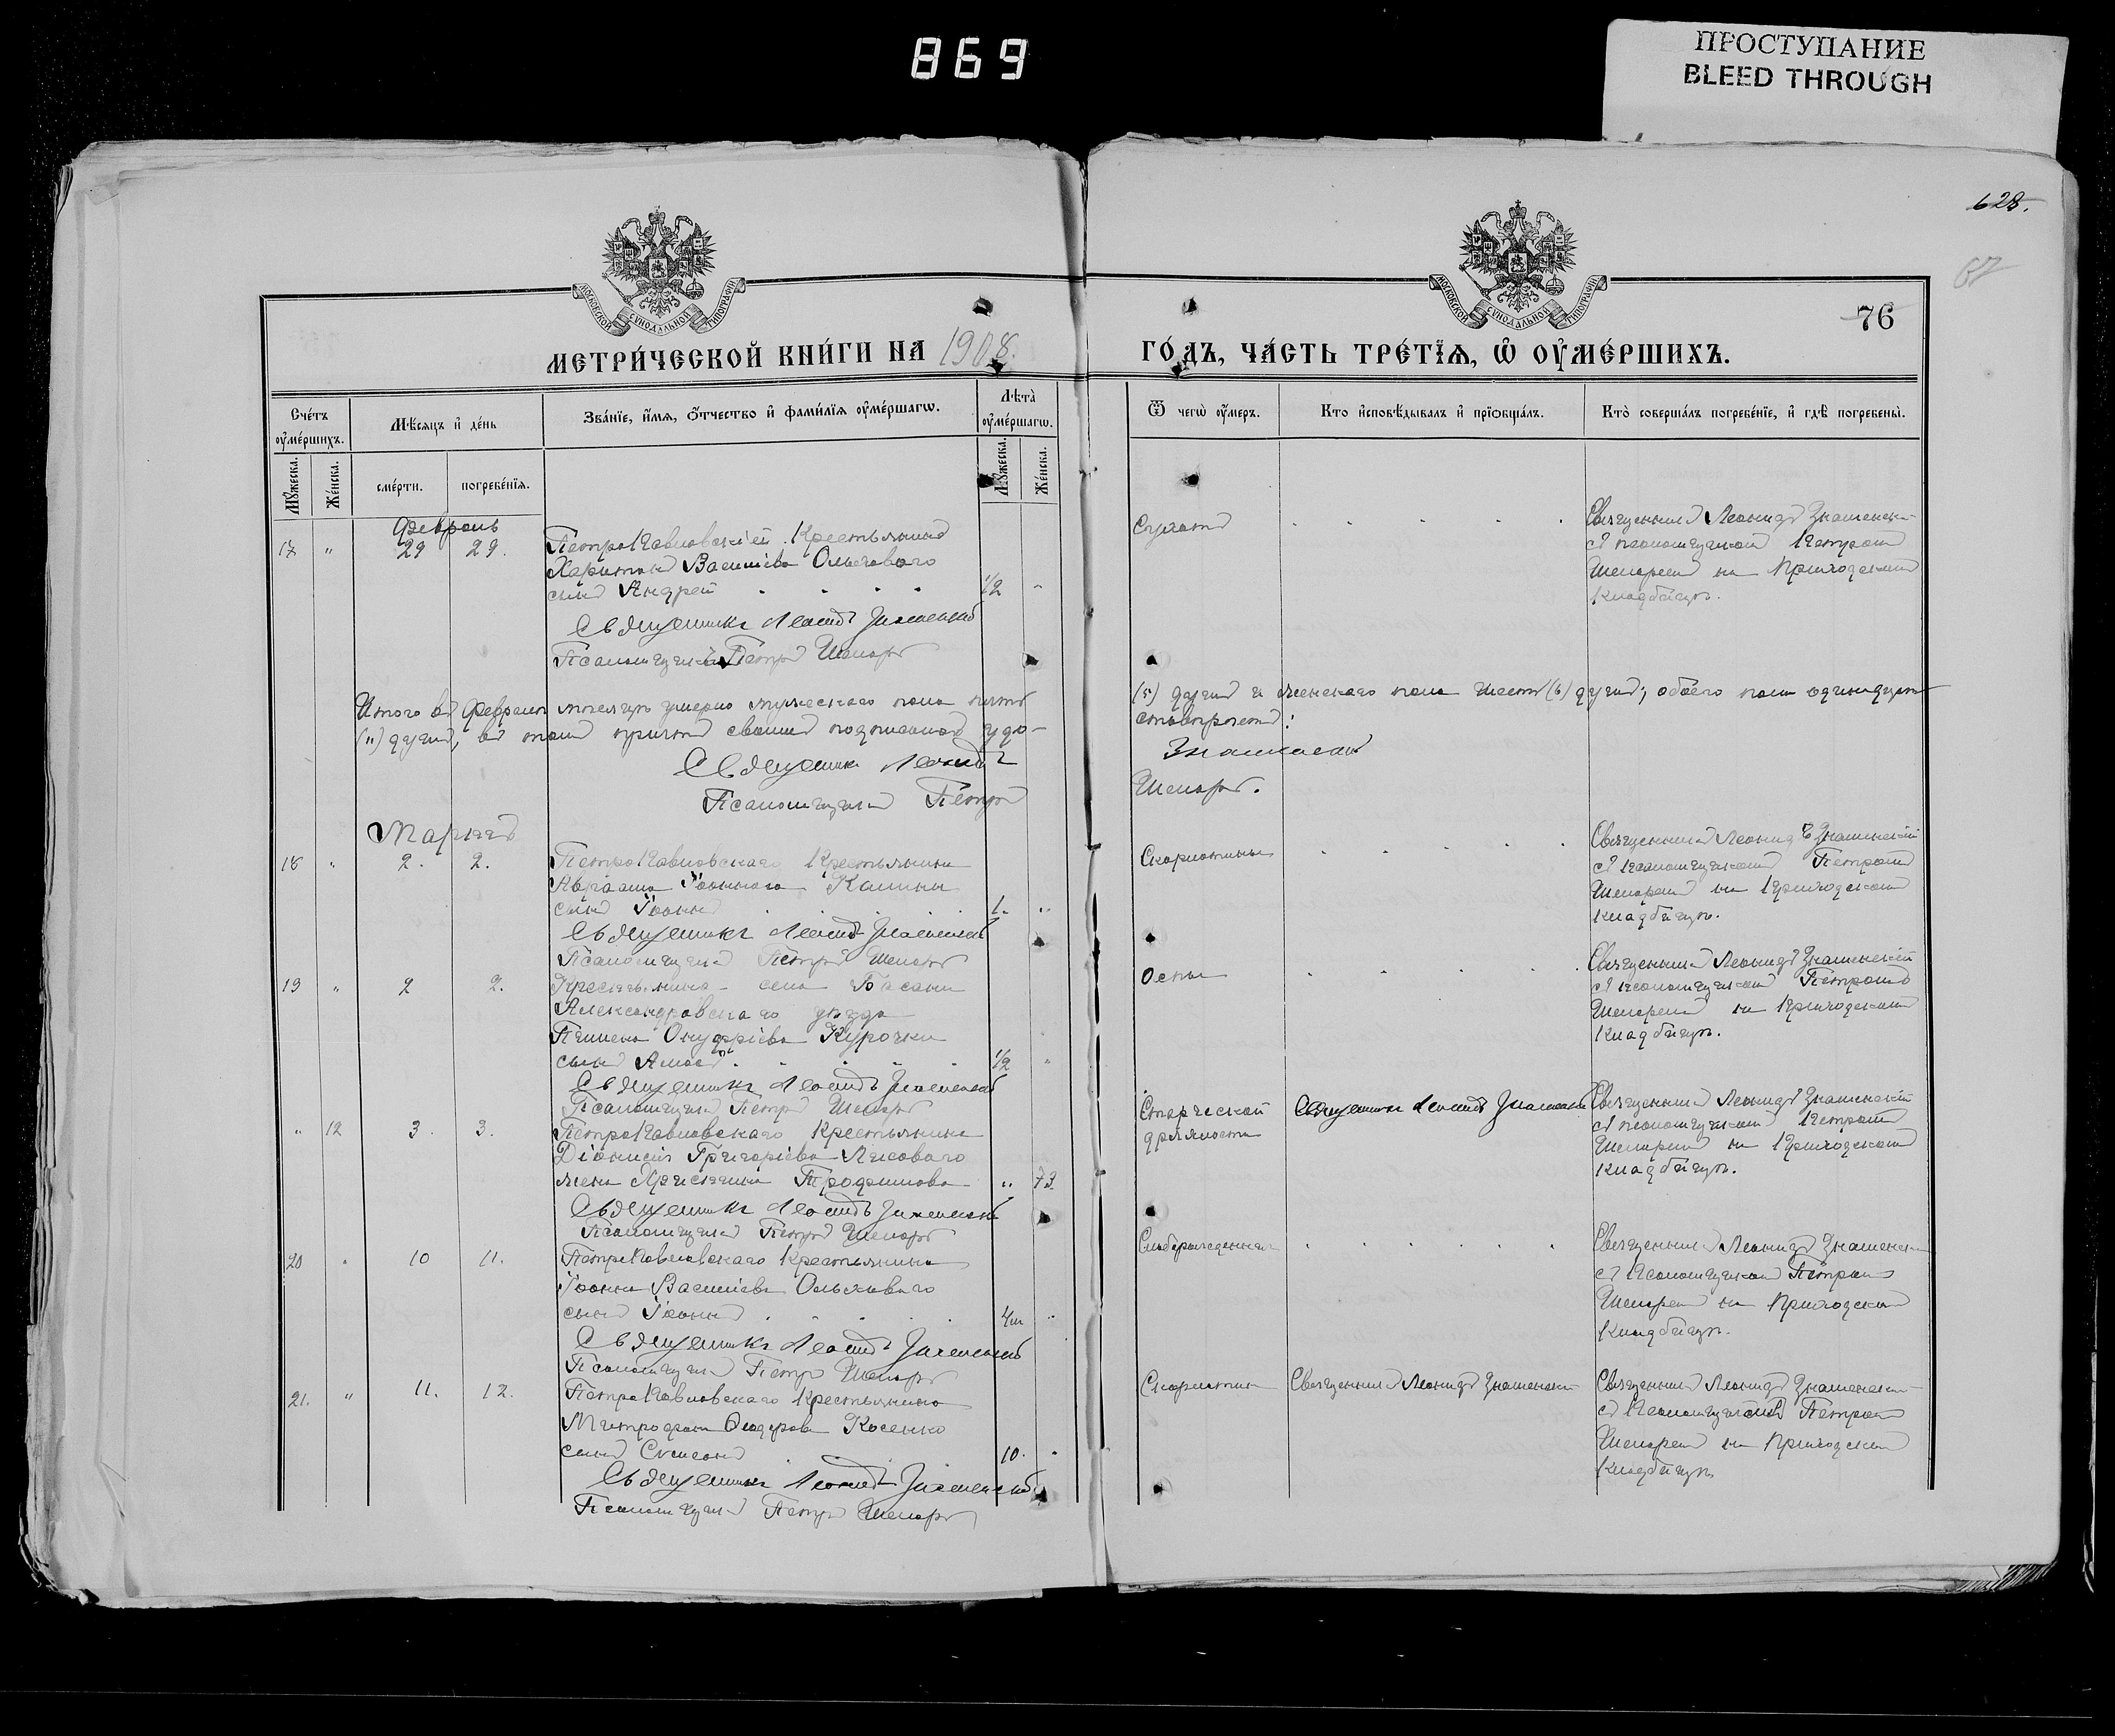 869
ПРОСТУПАНИЕ
BLEED THROUGH
628.
67
76
МОСКОВСКОЙ СѴНОДАЛЬНОЙ ТИПОГРАФІИ
МОСКОВСКОЙ СѴНОДАЛЬНОЙ ТИПОГРАФІИ
МЕТРИ́ЧЕСКОЙ КНИ́ГИ НА 1908.
ГО́ДЪ, ЧА́СТЬ ТРЕ́ТЇѦ, Ѽ ОУ҆МЕ́РШИХЪ.
Сче́тъ оу҆ме́ршихъ.
Мѣ́сѧцъ и҆ де́нь
Зва́нїе, и҆́мѧ, ѻ҆́тчество и҆ фами́лїѧ оу҆ме́ршагѡ.
Лѣта̀ оу҆ме́ршагѡ.
Ѿ чегѡ̀ оу҆́меръ.
Кто и҆сповѣ́дывалъ и҆ прїѡбща́лъ.
Кто̀ соверша́лъ погребе́нїе, и҆ гдѣ̀ погребены̀.
Мꙋ́жеска.
Же́нска.
сме́рти.
погребе́нїѧ.
Мꙋ́жеска.
Же́нска.
Февраль
17 " 29 29. Петропавловскій Крестьянинъ
Харитонъ Василіева Ольховаго
сынъ Андрей 1/2 "
Священникъ Леонидъ Знаменскій
Псаломщикъ Петръ
Священникъ Леонидъ Знаменскі
съ псаломщикомъ Петромъ
на Приходскомъ
кладбищѣ.
Итого въ Февралѣ мѣсяцѣ умерло мужескаго пола пять
(5) душъ и женскаго пола шесть (6) душъ; обоего пола одинадцать
(11) душъ, въ томъ причтъ своимъ подписомъ удо-
стовѣряетъ:
Священникъ Леонидъ Знаменскій
Псаломщикъ Петръ
Мартъ
18 " 2. 2. Петропавловскаго Крестьянина
Авраама Іоаннова Калины
сынъ Іоаннъ 1. "
Священникъ Леонидъ Знаменскій
Псаломщикъ Петръ
Скарлатины
Священникъ Леонидъ Знаменскій
съ псаломщикомъ Петромъ
на Приходскомъ
кладбищѣ.
19 " 2 2. Крестьянина села Басани
Александровскаго уѣзда
Пимена Онуфріева Курочки
сынъ 1/2 "
Священникъ Леонидъ Знаменскій
Псаломщикъ Петръ
Оспы
Священникъ Леонидъ Знаменскій
съ псаломщикомъ Петромъ
на Приходскомъ
кладбищѣ.
" 12 3. 3. Петропавловскаго Крестьянина
Діонисія Григоріева Лисоваго
жена Христина Трофимова " 73
Священникъ Леонидъ Знаменскій
Псаломщикъ Петръ
Старческой
дряхлости
Священникъ Леонидъ Знаменскій
Священникъ Леонидъ Знаменскій
съ псаломщикомъ Петромъ
на Приходскомъ
кладбищѣ.
20 " 10 11. Петропавловскаго Крестьянина
Іоанна Василіева Ольховаго
сынъ Іоаннъ 4м "
Священникъ Леонидъ Знаменскій
Псаломщикъ Петръ
Священникъ Леонидъ Знаменскі
съ псаломщикомъ Петромъ
на Приходскомъ
кладбищѣ.
21. " 11. 12. Петропавловскаго Крестьянина
Митрофана Феодорова Косенко
сынъ Симеонъ 10. "
Священникъ Леонидъ Знаменскій
Псаломщикъ Петръ
Скарлатины
Священникъ Леонидъ Знаменскі
Священникъ Леонидъ Знаменскі
съ псаломщикомъ Петромъ
на Приходскомъ
кладбищѣ